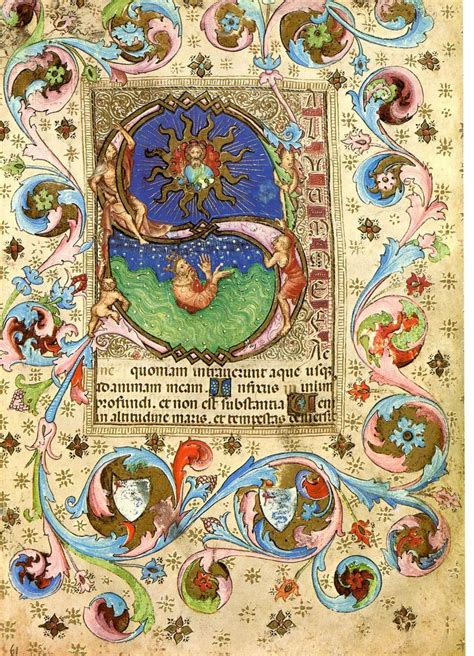 S
quoniam intrauerunt aque usq
ad animam meam Infixus in limo
profundi. et non est substantia Ueni
in altitudine maris. et tempestas demersit